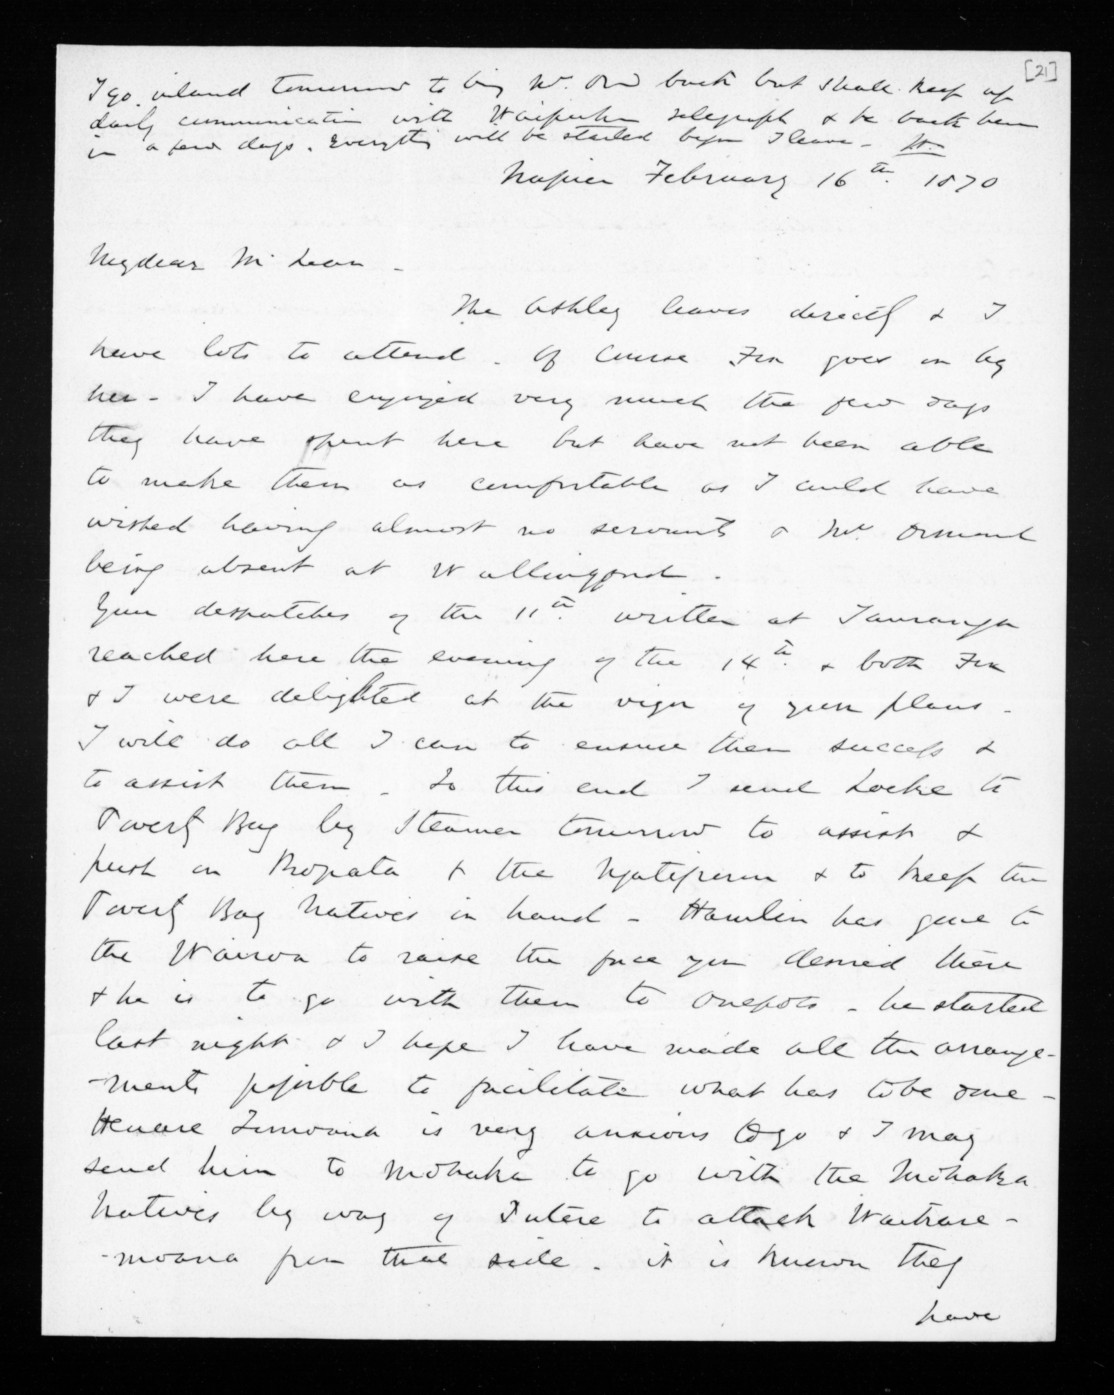 [21]
I go inland tomorrow to bring Mrs. Ord back but shall keep up
daily communication with Waipuku telegraph & be back here
in a few days. Everything will be started before I leave -
Napier February 16th. 1870
My dear McLean -
The Ashley leaves directly & I
have lots to attend. Of course Fox goes on by
her - I have enjoyed very much the few days
they have spent here but have not been able
to make them as comfortable as I could have
wished having almost no servants & Mrs. Ormond
being absent at Wallingford.
Your despatches of the 11th. written at Tauranga
reached here the evening of the 14th. & both Fox
& I were delighted at the vigor of your plans -
I will do all I can to ensure their success &
to assist them - To this end I send Locke to
Poverty Bay by Steamer tomorrow to assist &
push on Ropata & the Ngatiporou & to keep the
Poverty Bay Natives in hand - Hamlin has gone to
the Wairoa to raise the force you desired there
& he is to go with them to Onepoto - he started
last night & I hope I have made all the arrange-
-ments possible to facilitate what has to be done -
Henare Tomoana is very anxious to go & I may
send him to Mohaka to go with the Mohaka
Natives by way of Putere to attack Waikare-
-moana from that side. it is known they
have